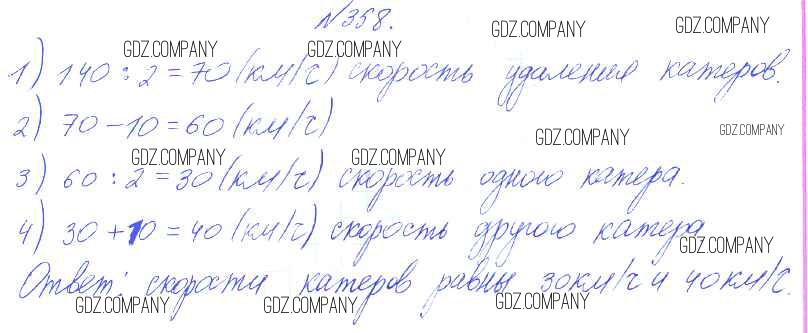 №358.
GDZ.COMPANY GDZ.COMPANY
GDZ.COMPANY GDZ.COMPANY
1) 140 : 2 = 70 (км/ч) скорость удаления катеров.
2) 70 - 10 = 60 (км/ч)
GDZ.COMPANY GDZ.COMPANY
GDZ.COMPANY GDZ.COMPANY
3) 60 : 2 = 30 (км/ч) скорость одного катера.
4) 30 + 10 = 40 (км/ч) скорость другого катера
GDZ.COMPANY
Ответ: скорости катеров равны 30 км/ч и 40 км/ч.
GDZ.COMPANY GDZ.COMPANY GDZ.COMPANY